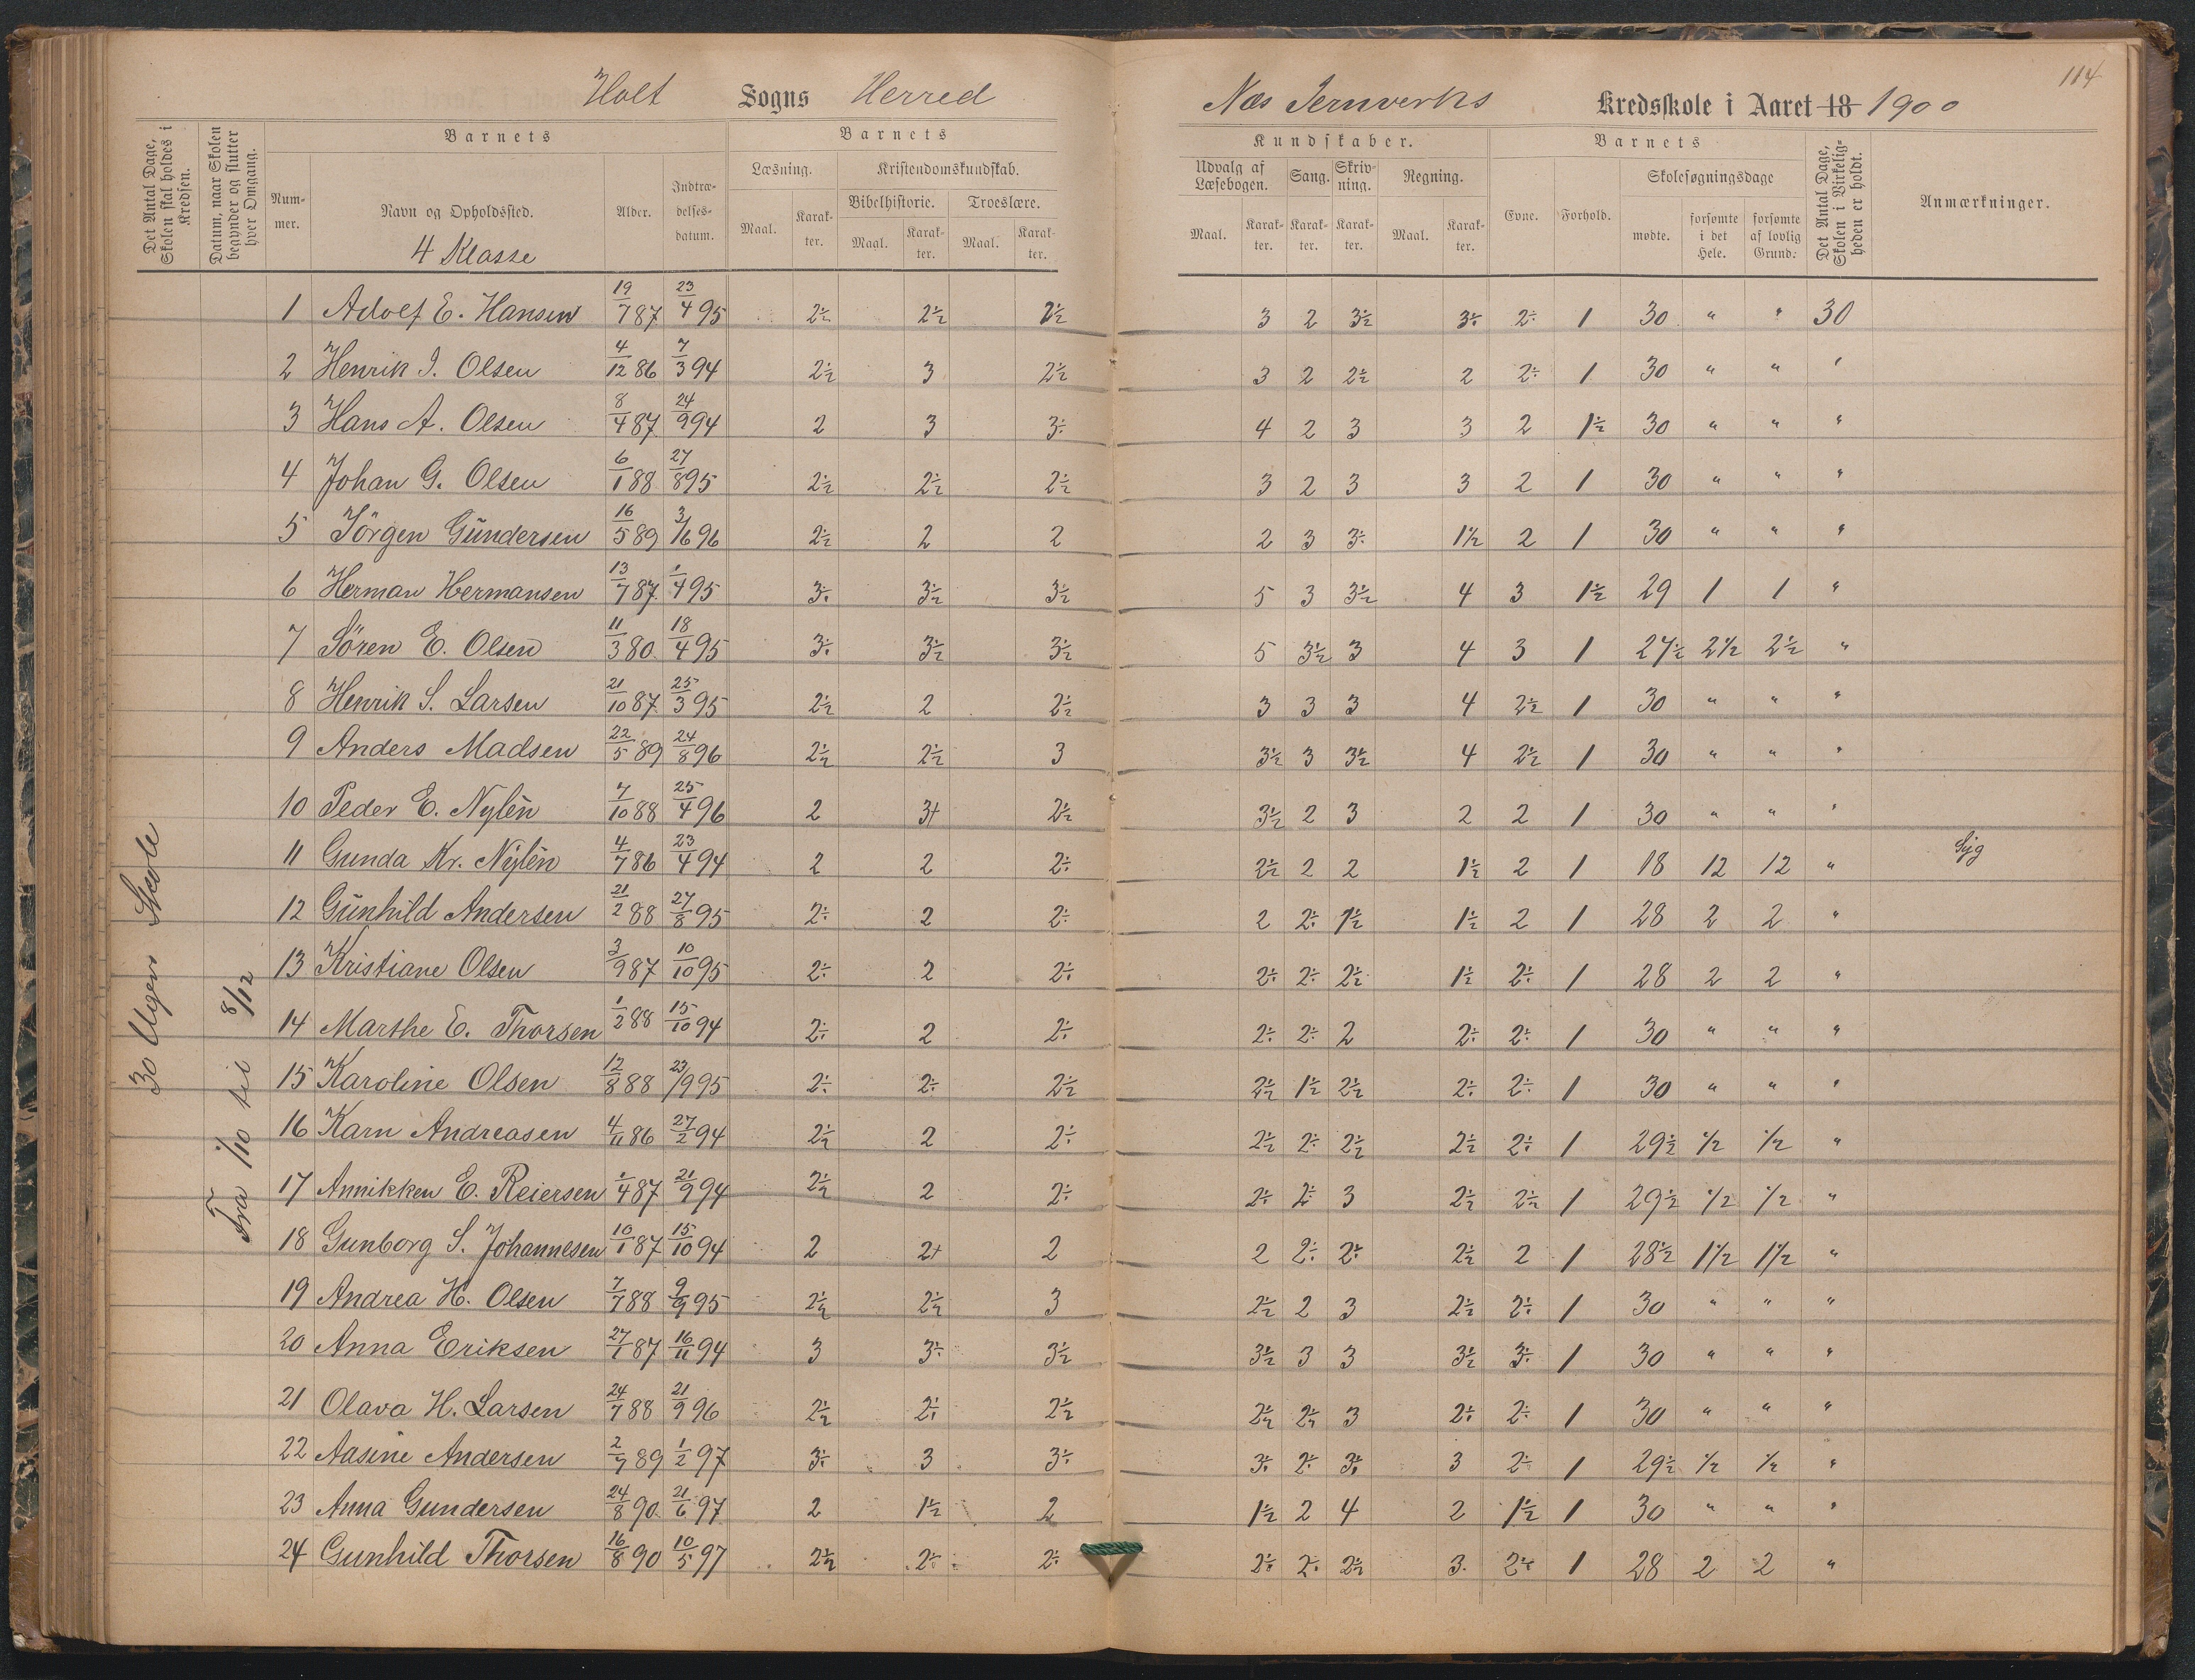 Holt Sogns Herred
Næs Jernverks Kredsskole i Aaret 18 1900
114
Det Antal Dage, Skolen skal holdes i Kredsen.
Datum, naar Skolen begynder og slutter hver Omgang.
Barnets
Nummer.
Navn og Opholdssted.
Alder.
Indtrædelsesdatum.
Barnets
Læsning.
Maal.
Karakter.
Kristendomskundskab.
Bibelhistorie.
Maal.
Karakter.
Troeslære.
Maal.
Karakter.
Kundskaber.
Udvalg af Læsebogen.
Maal.
Karakter.
Sang.
Karakter.
Skrivning.
Karakter.
Regning.
Maal.
Karakter.
Barnets
Evne.
Forhold.
Skolesøgningsdage
mødte.
forsømte i det Hele.
forsømte af lovlig Grund.
Det Antal Dage, Skolen i Virkeligheden er holdt.
Anmærkninger.
4 Klasse
30 Ugers Skole
Fra 1/10 til 8/12
1 Adolf E. Hansen 19/7 87 23/4 95 2½ 2½ 2½ 3 2 3½ 3÷ 2÷ 1 30 " " 30
2 Henrik J. Olsen 4/12 86 7/3 94 2½ 3 2½ 3 2 2½ 2 2÷ 1 30 " " "
3 Hans A. Olsen 8/4 87 24/9 94 2 3 3÷ 4 2 3 3 2 1½ 30 " " "
4 Johan G. Olsen 6/1 88 27/8 95 2½ 2½ 2½ 3 2 3 3 2 1 30 " " "
5 Jörgen Gundersen 16/5 89 3/6 96 2½ 2 2 2 3 3÷ 1½ 2 1 30 " " "
6 Herman Hermansen 13/7 87 1/4 95 3÷ 3½ 3½ 5 3 3½ 4 3 1½ 29 1 1 "
7 Sören E. Olsen 11/3 80 18/4 95 3÷ 3½ 3½ 5 3½ 3 4 3 1 27½ 2½ 2½ "
8 Henrik S. Larsen 21/10 87 25/3 95 2½ 2 2½ 3 3 3 4 2½ 1 30 " " "
9 Anders Madsen 22/5 89 24/8 96 2½ 2½ 3 3½ 3 3½ 4 2½ 1 30 " " "
10 Peder E. Nylén 7/10 88 25/4 96 2 3+ 2½ 3½ 2 3 2 2 1 30 " " "
11 Gunda Kr. Nylén 4/7 86 23/4 94 2 2 2÷ 2½ 2 2 1½ 2 1 18 12 12 " Syg
12 Gunhild Andersen 21/2 88 27/8 95 2÷ 2 2÷ 2 2÷ 1½ 1½ 2 1 28 2 2 "
13 Kristiane Olsen 3/9 87 10/10 95 2÷ 2 2÷ 2÷ 2÷ 2½ 1½ 2÷ 1 28 2 2 "
14 Marthe E. Thorsen 1/2 88 15/10 94 2÷ 2 2÷ 2÷ 2÷ 2 2÷ 2÷ 1 30 " " "
15 Karoline Olsen 12/8 88 23/9 95 2÷ 2÷ 2½ 2½ 1½ 2½ 2÷ 2÷ 1 30 " " "
16 Karn Andreasen 4/11 86 27/2 94 2½ 2 2÷ 2½ 2÷ 2½ 2½ 2÷ 1 29½ ½ ½ "
17 Annikken E. Reiersen 1/4 87 21/9 94 2½ 2 2÷ 2÷ 2÷ 3 2½ 2½ 1 29½ ½ ½ "
18 Gunborg S. Johannesen 10/1 87 15/10 94 2 2+ 2 2 2÷ 2÷ 2½ 2 1 28½ 1½ 1½ "
19 Andrea H. Olsen 7/7 88 9/9 95 2½ 2½ 3 2½ 2 3 2½ 2÷ 1 30 " " "
20 Anna Eriksen 27/1 87 16/11 94 3 3÷ 3½ 3½ 3 3 3½ 3÷ 1 30 " " "
21 Olava H. Larsen 24/7 88 21/9 96 2½ 2÷ 2½ 2½ 2½ 3 2÷ 2÷ 1 30 " " "
22 Aasine Andersen 2/7 89 1/2 97 3÷ 3 3÷ 3÷ 2÷ 3÷ 3 2÷ 1 29½ ½ ½ "
23 Anna Gundersen 24/8 90 21/6 97 2 1½ 2 1½ 2 4 2 1½ 1 30 " " "
24 Gunhild Thorsen 16/8 90 10/5 97 2½ 2÷ 2÷ 2÷ 2÷ 2½ 3 2÷ 1 28 2 2 "